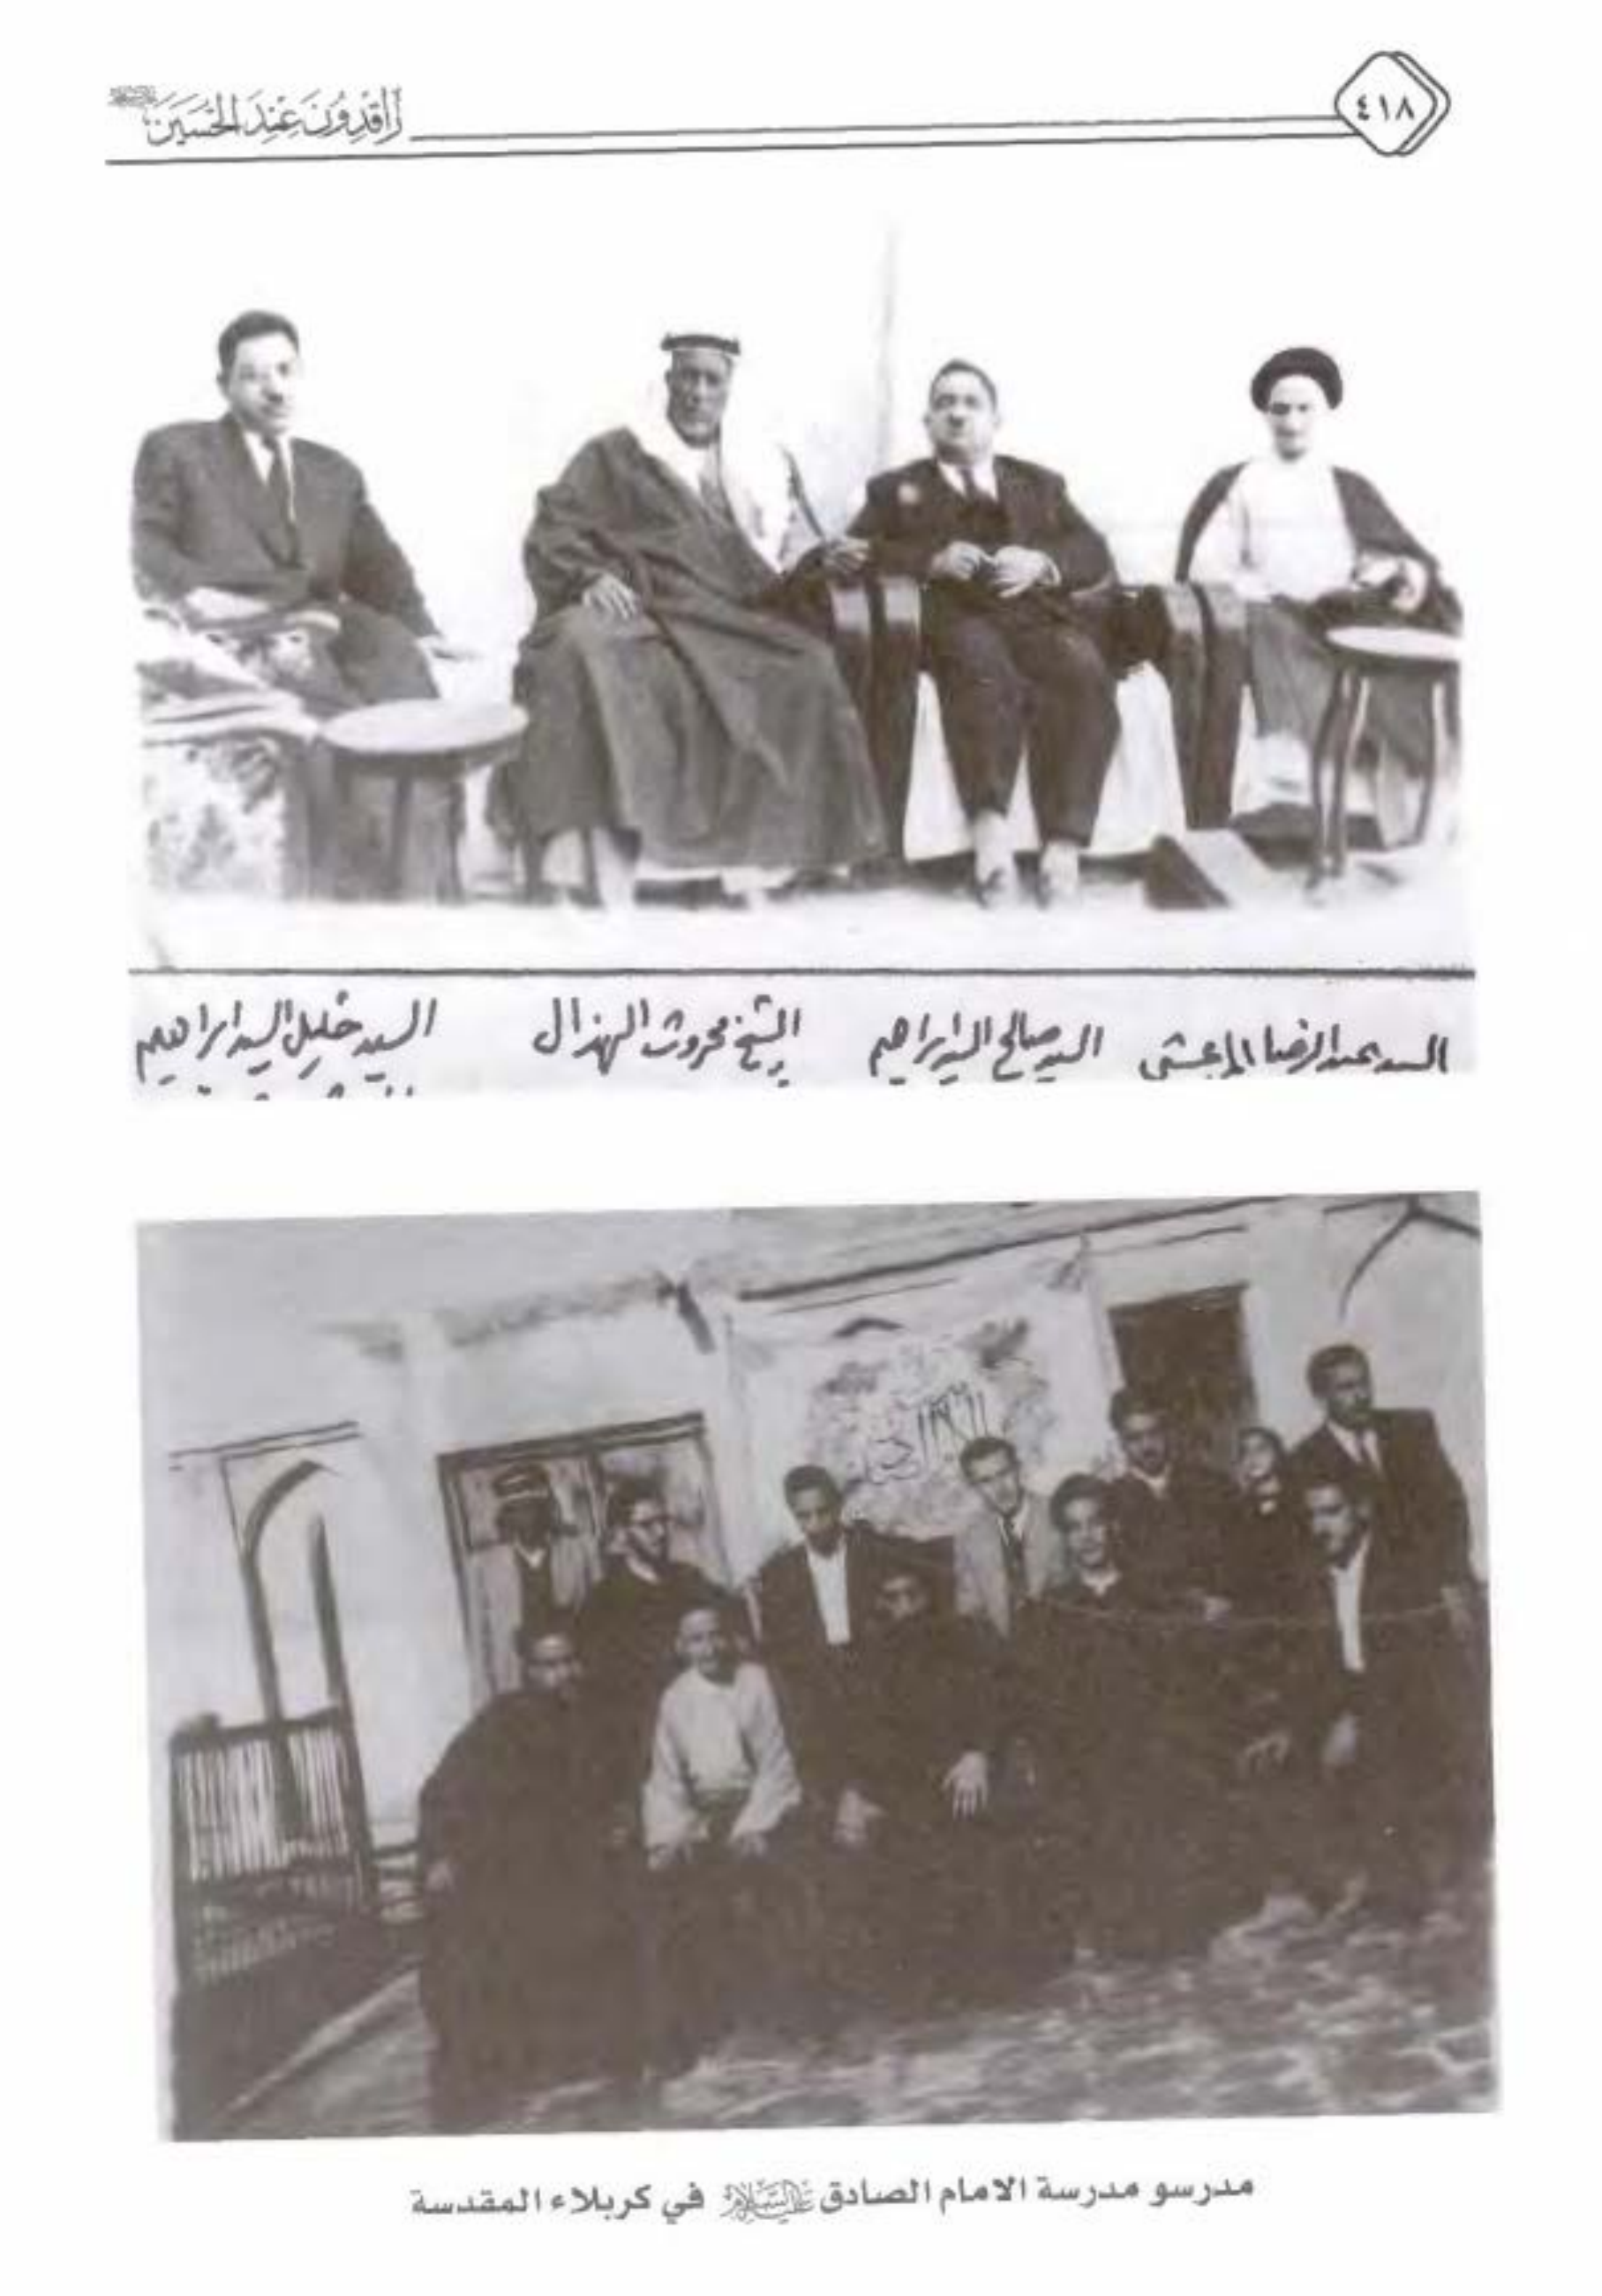 ٤١٨
رَاقِدُونَ عِنْدَ الحُسَيْن
السيد عبدالرضا المرعشي السيد صالح السيد ابراهيم الشيخ محروث الهذال السيد خليل السيد ابراهيم
مدرسو مدرسة الامام الصادق عليه السلام في كربلاء المقدسة